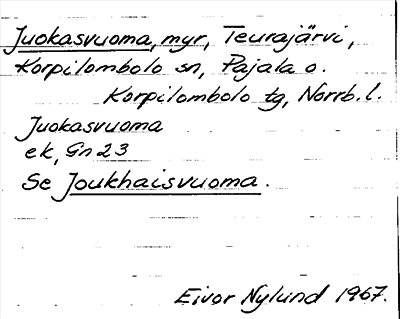 Juokasvuoma, myr, Teurajärvi,
Korpilombolo sn, Pajala o.
Korpilombolo tg, Norrb. l.
Juokasvuoma
ek, Gn 23
Se Joukhaisvuoma.
Eivor Nylund 1967.